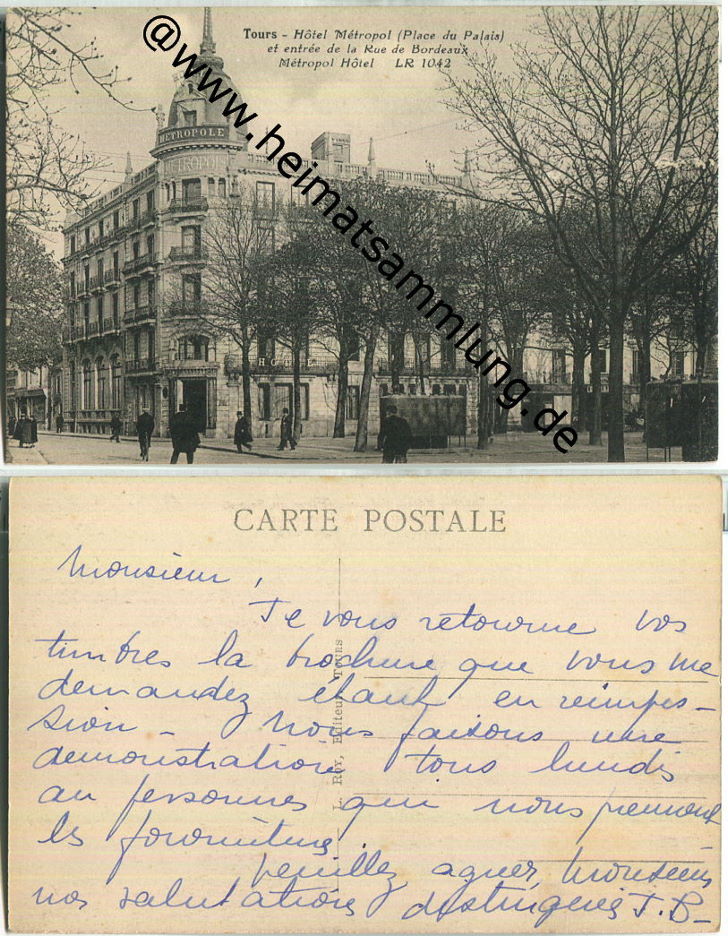 Tours - Hôtel Métropol (Place du Palais)
et entrée de la Rue de Bordeaux
Métropol Hôtel LR 1042
@www.heimatsammlung.de
METROPOLE
METROPOLE
CARTE POSTALE
L. Roy, Editeur, Tours
Monsieur,
Je vous retourne vos
timbres la brochure que vous me
demandez étant en reimpes-
sion - Nous faisons une
demonstration tous lundis
au personnes qui nous prennent
les fournitures.
Veuillez agréer, Monsieur
nos salutations distinguées J.B-